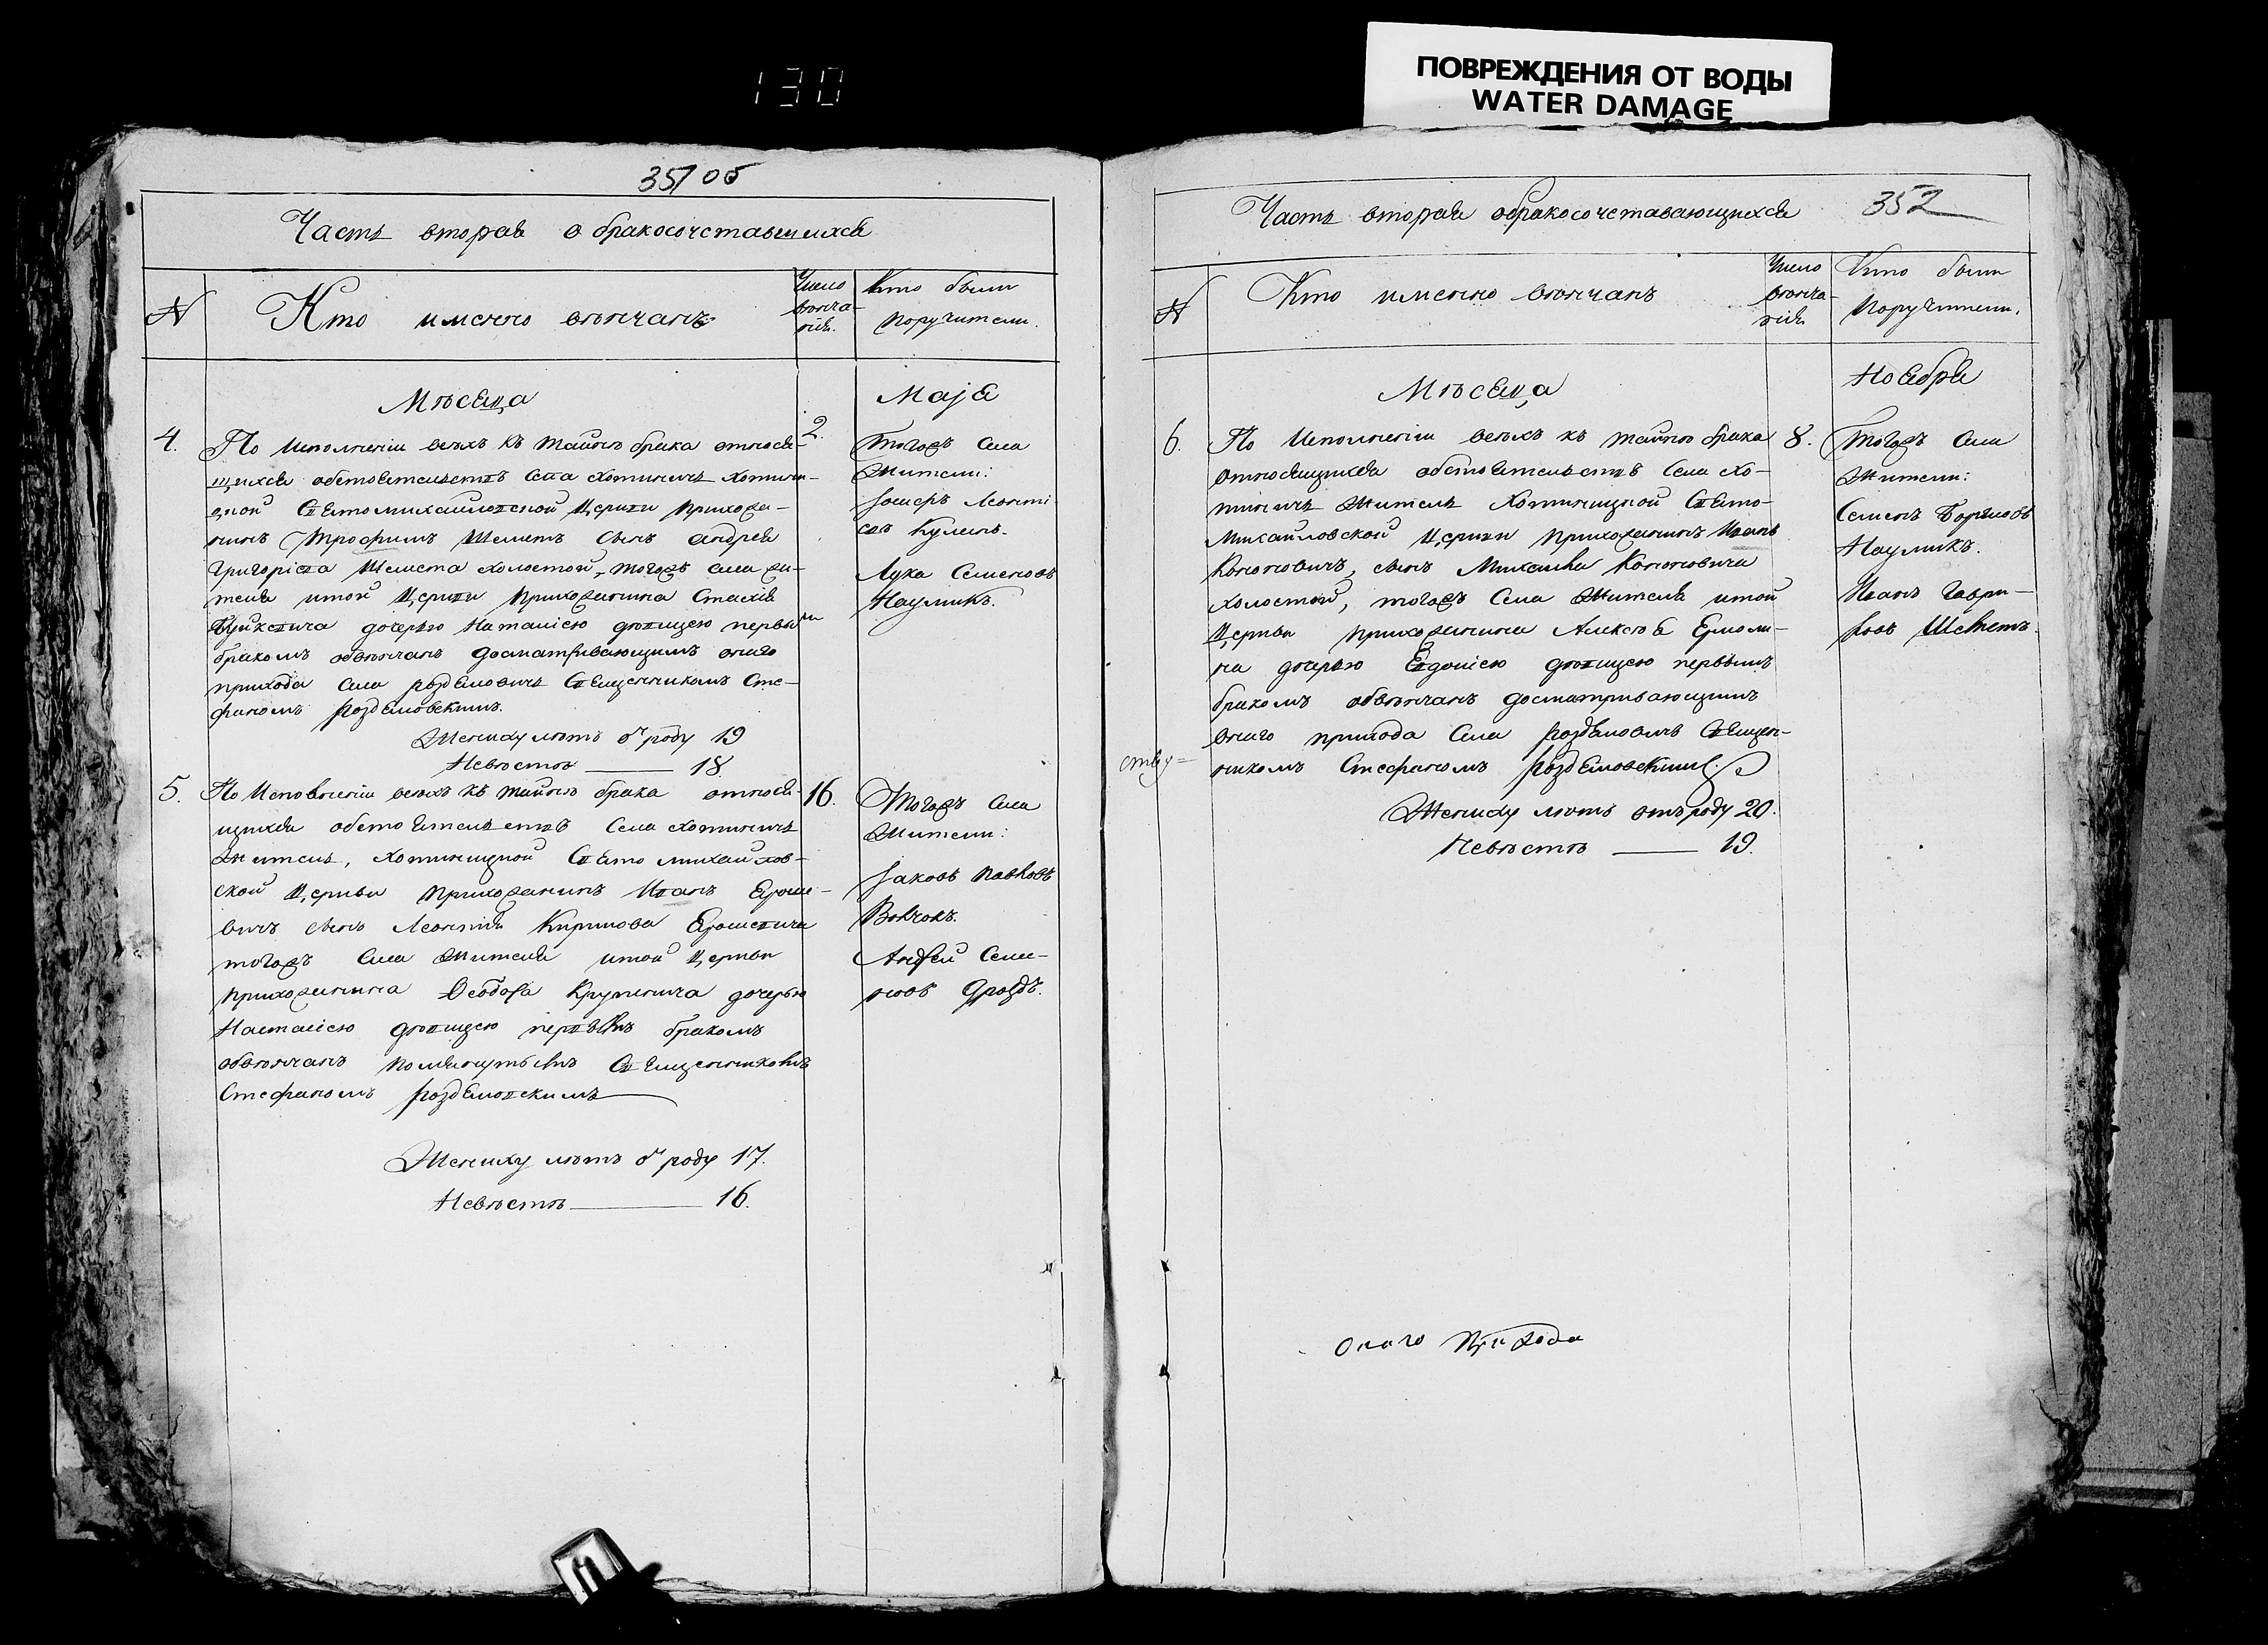 130
ПОВРЕЖДЕНИЯ ОТ ВОДЫ
WATER DAMAGE
35/об
Часть вторая о бракосочетавшихся
№
Кто именно вѣнчанъ
Число
вѣнча-
нія.
Кто были
поручители.
Мѣсяца
Маjя
4.
По исполненіи всѣхъ къ тайнѣ брака относя-
щихся обстоятельствъ села Хотыничь Хотыни-
цкой Святомихайловской Церкви прихожа-
нинъ Трофимъ Шеметъ сынъ Андрея
Григоріева Шемета холостой, тогожъ села жи-
теля и той Церкви прихожанина Стасія
дочерью Наталіею дѣвицею первымъ
бракомъ обвѣнчанъ досматривающимъ онаго
прихода села Роздяловичь Священникомъ Сте-
фаномъ Роздяловскимъ.
Жениху лѣтъ отъ роду 19
Невѣстѣ 18.
2.
Тогожъ села
жители:
Іосифъ Леонті
евъ Кулинъ.
Лука Семеновъ
Наумикъ.
5.
По исполненіи всѣхъ къ тайнѣ брака относя-
щихся обстоятельствъ села Хотыничь
житель, Хотыницкой Свято Михайлов-
ской Церкви прихожанинъ Иванъ Ероше-
вичъ сынъ Леонтія Кирилова Ерошевича
тогожъ села жителя и той Церкви
прихожанина Ѳеодора Крупенича дочерью
Наталіею дѣвицею первымъ бракомъ
обвѣнчанъ помянутымъ Священникомъ
Стефаномъ Роздяловскимъ
Жениху лѣтъ отъ роду 17.
Невѣстѣ 16.
16.
Тогожъ села
жители:
Іаковъ Павловъ
Волчокъ.
Андрей Семе-
новъ Дроздъ.
Часть вторая о бракосочетавающихся
352
№
Кто именно вѣнчанъ
Число
вѣнча-
нія
Кто были
поручители.
Мѣсяца
Ноября
6.
По исполненіи всѣхъ къ тайнѣ брака
относящихся обстоятельствъ села Хо-
тыничь житель Хотыницкой Свято-
Михайловской Церкви прихожанинъ Иванъ
Кононовичъ, сынъ Михаила Кононовича
холостой, тогожъ села жителя и той
Церкви прихожанина Алексѣя Ермоли-
на дочерью Евдокіею дѣвицею первымъ
бракомъ обвѣнчанъ досматривающимъ
онаго прихода села Роздяловичь Священ-
никомъ Стефаномъ Роздяловскимъ.
Жениху лѣтъ отъ роду 20.
Невѣстѣ 19.
8.
Тогожъ села
жители:
Семенъ
Наумикъ.
Иванъ Гаври-
ловъ Шеметъ.
онаго прихода